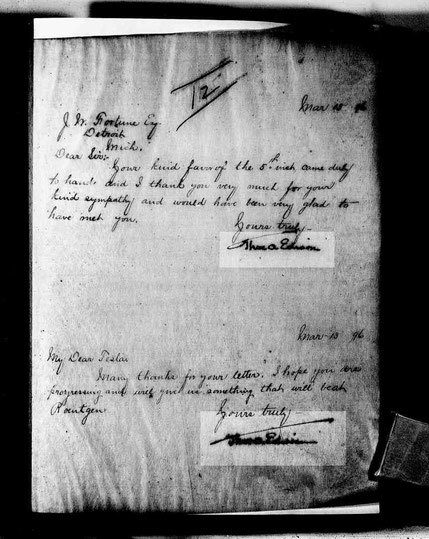 12
Mar 10 96
J. W. Fortune Esq
Detroit
Mich.
Dear Sir:-
Your kind favor of the 5th inst came duly
to hand and I thank you very much for your
kind sympathy and would have been very glad to
have met you.
Yours truly
Thos A Edison
Mar 10 96
My Dear Tesla
Many thanks for your letter. I hope you are
progressing and will give us something that will beat
Roentgen.
Yours truly
Thos A Edison